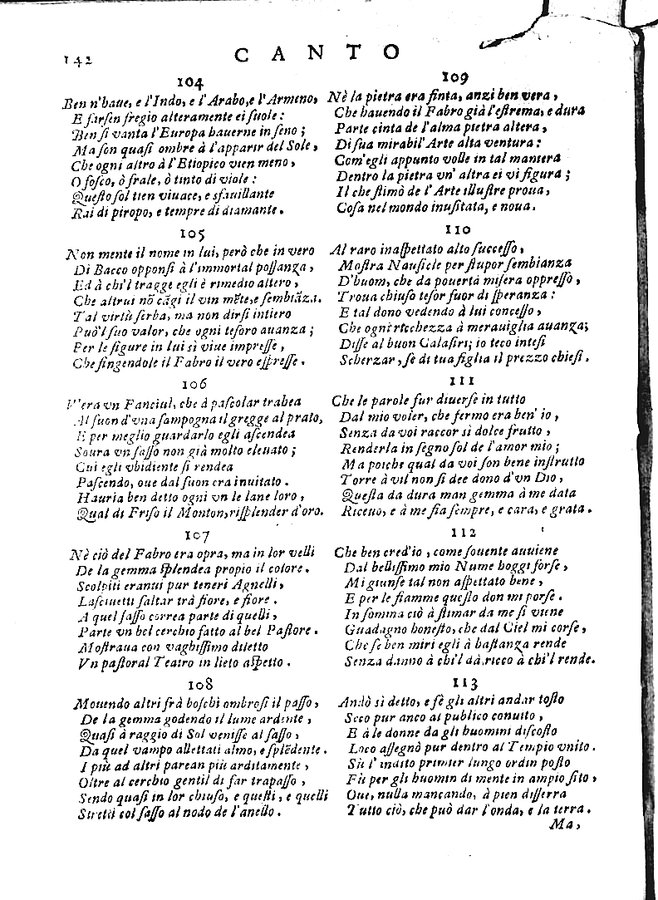 142 CANTO
104
Ben n'haue, e l'Indo, e l'Arabo, e l'Armeno,
E farsen fregio alteramente ei suole:
Ben si vanta l'Europa hauerne in seno;
Ma son quasi ombre à l'apparir del Sole,
Che ogni altro à l'Etiopico vien meno,
O fosco, ò frale, ò tinto di viole:
Questo sol tien viuace, e sfauillante
Rai di piropo, e tempre di diamante.
105
Non mente il nome in lui, però che in vero
Di Bacco opponsi à l'immortal possanza,
Ed à chi'l tragge egli è rimedio altero,
Che altrui nõ cãgi il vin mẽte, e sembiãza.
Tal virtù serba, ma non dirsi intiero
Può'l suo valor, che ogni tesoro auanza;
Per le figure in lui sì viue impresse,
Che fingendole il Fabro il vero espresse.
106
V'era vn Fanciul, che à pascolar trahea
Al suon d'vna sampogna il gregge al prato,
E per meglio guardarlo egli ascendea
Soura vn sasso non già molto eleuato;
Cui egli vbidiente si rendea
Pascendo, oue dal suon era inuitato.
Hauria ben detto ogni vn le lane loro,
Qual di Friso il Monton, risplender d'oro.
107
Nè ciò del Fabro era opra, ma in lor velli
De la gemma splendea propio il colore.
Scolpiti eranui pur teneri Agnelli,
Lasciuetti saltar trà fiore, e fiore.
A quel sasso correa parte di quelli,
Parte vn bel cerchio fatto al bel Pastore.
Mostraua con vaghissimo diletto
Vn pastoral Teatro in lieto aspetto.
108
Mouendo altri frà boschi ombrosi il passo,
De la gemma godendo il lume ardente,
Quasi à raggio di Sol venisse al sasso,
Da quel vampo allettati almo, e splẽdente.
I più ad altri parean più arditamente,
Oltre al cerchio gentil di far trapasso,
Sendo quasi in lor chiuso, e questi, e quelli
Stretti col sasso al nodo de l'anello.
109
Nè la pietra era finta, anzi ben vera,
Che hauendo il Fabro già l'estrema, e dura
Parte cinta de l'alma pietra altera,
Di sua mirabil'Arte alta ventura:
Com'egli appunto volle in tal maniera
Dentro la pietra vn' altra ei vi figura;
Il che stimò de l'Arte illustre proua,
Cosa nel mondo inusitata, e noua.
110
Al raro inaspettato alto successo,
Mostra Nausicle per stupor sembianza
D'huom, che da pouertà misera oppresso,
Troua chiuso tesor fuor di speranza:
E tal dono vedendo à lui concesso,
Che ogni ricchezza à merauiglia auanza;
Disse al buon Calasiri; io teco intesi
Scherzar, sè di tua figlia il prezzo chiesi.
111
Che le parole fur diuerse in tutto
Dal mio voler, che fermo era ben' io,
Senza da voi raccor sì dolce frutto,
Renderla in segno sol de l'amor mio;
Ma poiche qual da voi son bene instrutto
Torre à vil non si dee dono d'vn Dio,
Questa da dura man gemma à me data
Riceuo, e à me fia sempre, e cara, e grata.
112
Che ben cred'io, come souente auuiene
Dal bellissimo mio Nume hoggi forse,
Mi giunse tal non aspettato bene,
E per le fiamme questo don mi porse.
In somma ciò à stimar da me si viene
Guadagno honesto, che dal Ciel mi corse,
Che se ben miri egli à bastanza rende
Senza danno à chi'l dà, ricco à chi'l rende.
113
Andò sì detto, e fè gli altri andar tosto
Seco pur anco al publico conuito,
E à le donne da gli huomini discosto
Loco assegnò pur dentro al Tempio vnito.
Sù l'indito primier lungo ordin posto
Fù per gli huomin di mente in ampio sito,
Oue, nulla mancando, à pien disserra
Tutto ciò, che può dar l'onda, e la terra.
Ma,